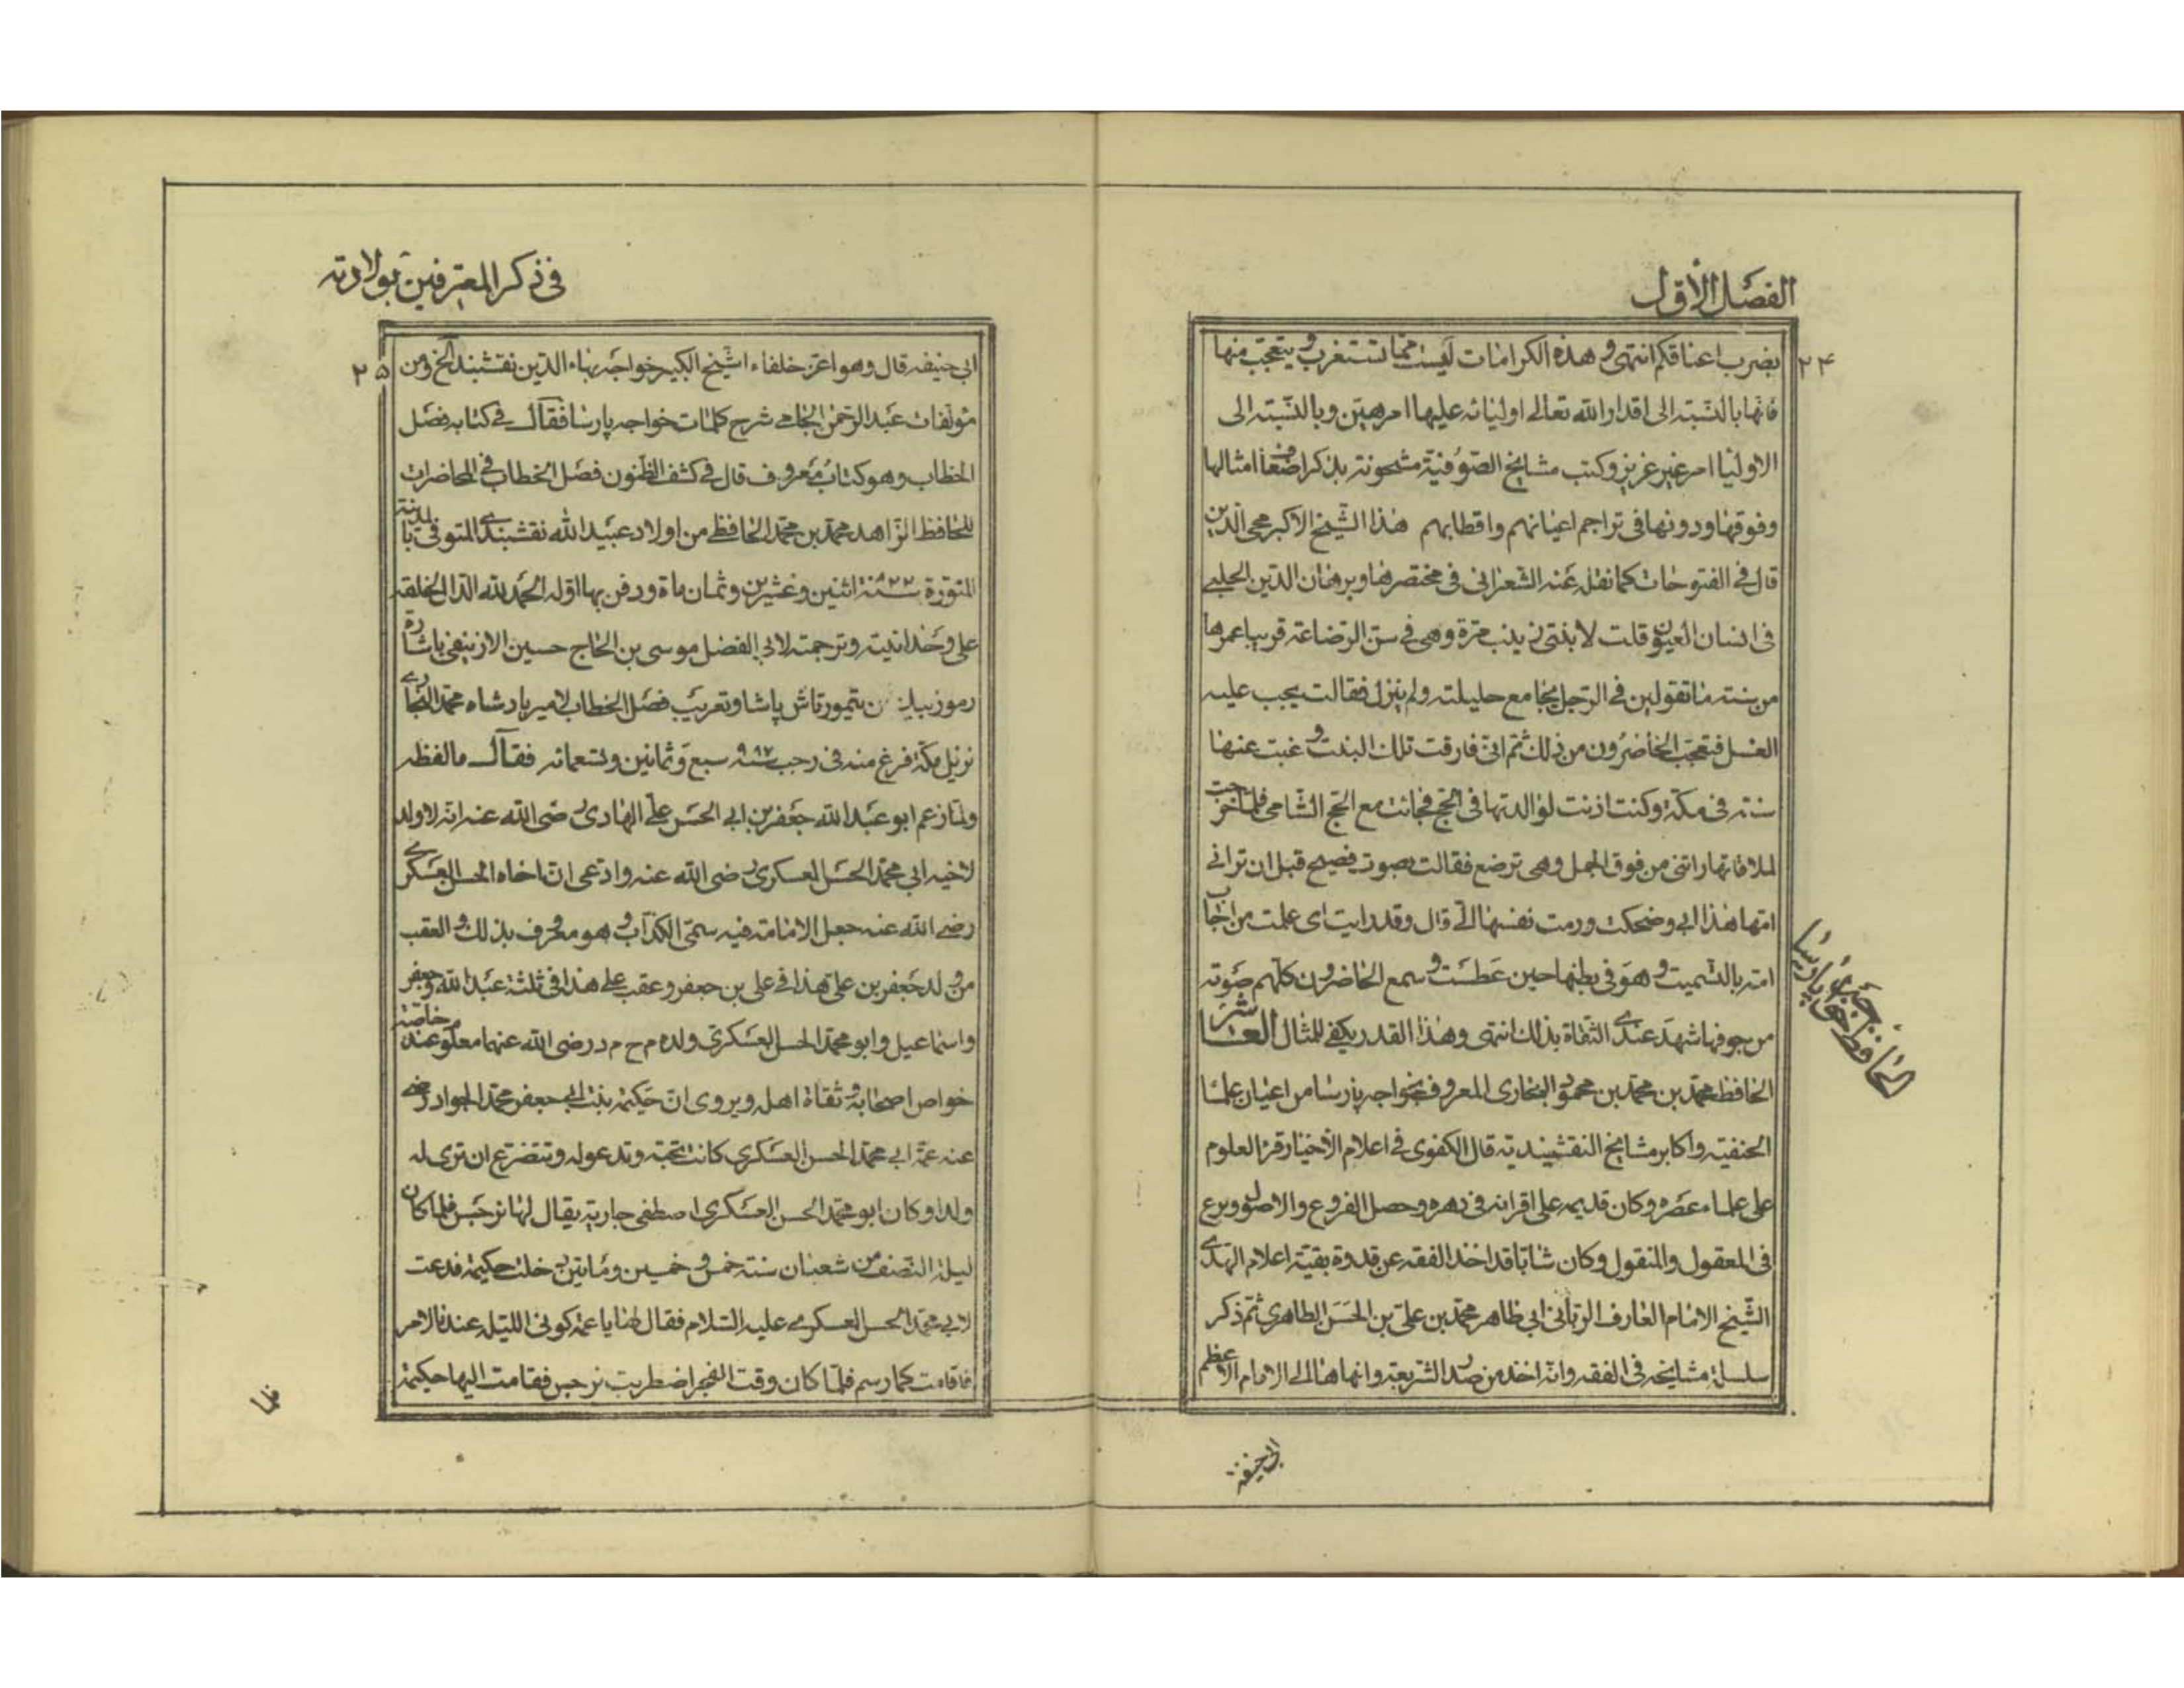 الفصل الأول
٢٤
بضرب اعناقكم انتهى و هذه الكرامات ليست مما تستغرب و يتعجب منها
فانها بالنسبة الى اقدار الله تعالى اوليائه عليها امر هين وبالنسبة الى
الاولياء امر غير عزيز وكتب مشايخ الصوفية مشحونة بذكر اضعاف امثالها
وفوقها ودونها فى تراجم اعيانهم واقطابهم هذا الشيخ الاكبر محي الدين
قال فى الفتوحات كما نقل عنه الشعرانى فى مختصرها وبرهان الدين الحلبي
فى انسان العيون قلت لابنتى زينب مرة وهى فى سن الرضاعة قريبا عمرها
من سنة ما تقولين فى الرجل يجامع حليلته ولم ينزل فقالت يجب عليه
الغسل فتعجب الحاضرون من ذلك ثم انى فارقت تلك البنت و غبت عنها
سنة فى مكة وكنت اذنت لوالدتها فى الحج فجائت مع الحج الشامى فلما خرجت
لملاقاتها راتنى من فوق الجمل وهى ترضع فقالت بصوت فصيح قبل ان ترانى
امها هذا ابى وضحكت ورمت نفسها الى قال وقد رايت اى علمت من اجاب
امه بالتشميت و هو فى بطنها حين عطست و سمع الحاضرون كلهم صوته
من جوفها شهد عندى الثقاة بذلك انتهى وهذا القدر يكفى للمثال العاشر
الحافظ محمد بن محمد بن محمود البخارى المعروف بخواجه پارسا من اعيان علماء
الحافظ خواجه پارسا
الحنفية واكابر مشايخ النقشبندية قال الكفوى فى اعلام الأخيار قرأ العلوم
على علماء عصره وكان قديمه على اقرانه فى دهره وحصل الفروع والاصول وبرع
فى المعقول والمنقول وكان شابا قد اخذ الفقه عن قدوة بقية اعلام الهدى
الشيخ الامام العارف الربانى ابى طاهر محمد بن على بن الحسن الطاهرى ثم ذكر
سلسلة مشايخه فى الفقه وانه اخذ من صدر الشريعة وانهاها الى الامام الاعظم
ابى حنيفة
فى ذكر المعترفين بولادته
٢٥
ابى حنيفه قال وهو اعز خلفاء الشيخ الكبير خواجه بهاء الدين نقشبند الخ ومن
مؤلفات عبد الرحمن الجامى شرح كلمات خواجه پارسا فقال فى كتابه فصل
الخطاب وهو كتاب معروف قال فى كشف الظنون فصل الخطاب فى المحاضرات
للحافظ الزاهد محمد بن محمد الحافظى من اولاد عبيد الله نقشبندى المتوفى بالمدينة
المنورة ٨٢٢ سنة اثنين وعشرين وثمان مأة ودفن بها اوله الحمد لله الدال لخلقه
على وحدانيته وترجمته لابى الفضل موسى بن الحاج حسين الازنيقى باشارة
بن تيمورتاش پاشا وتعريب فصل الخطاب لامير پادشاه محمد البخارى
نزيل مكة فرغ منه فى رجب سنة ٩٨٧ سبع وثمانين وتسعمائه فقال ما لفظه
ولما زعم ابو عبد الله جعفر بن ابى الحسن على الهادى رضى الله عنه انه لا ولد
لاخيه ابى محمد الحسن العسكرى رضى الله عنه وادعى ان اخاه الحسن العسكرى
رضى الله عنه جعل الامامة فيه سمى الكذاب و هو معروف بذلك و العقب
من ولد جعفر بن على هذا فى على بن جعفر وعقب على هذا فى ثلثة عبد الله وجعفر
واسماعيل وابو محمد الحسن العسكرى ولده م ح م د رضى الله عنهما معلوم عند خاصة
خواص اصحابه و ثقاة اهله ويروى ان حكيمة بنت ابى جعفر محمد الجواد رضى
عنه عمة ابى محمد الحسن العسكرى كانت تحبه وتدعو له وتتضرع ان ترى له
ولدا وكان ابو محمد الحسن العسكرى اصطفى جارية يقال لها نرجس فلما كان
ليلة النصف من شعبان سنة خمس و خمسين ومأتين دخلت حكيمة فدعت
لابى محمد الحسن العسكرى عليه السلام فقال لها يا عمة كونى الليلة عندنا لامر
فاقامت كما رسم فلما كان وقت الفجر اضطربت نرجس فقامت اليها حكيمة
فلما